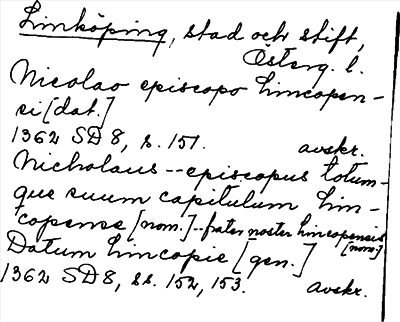 Linköping, stad och stift,
Österg. l.
Nicolao episcopo Lincopen-
si [dat.]
1362 SD 8, s. 151. avskr.
Nicholaus -- episcopus totum-
que suum capitulum Lin-
copense [nom.] -- frater noster Lincopensis
[nom.]
Datum Lincopie [gen.]
1362 SD 8, ss. 152, 153. avskr.